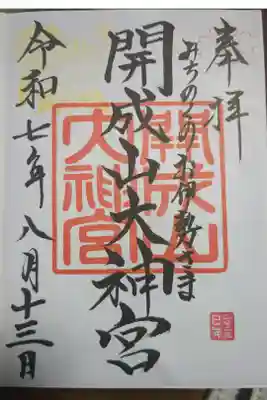 奉拝
みちのくのお伊勢さま
開成山大神宮
開成山
大神宮
令和七年八月十三日